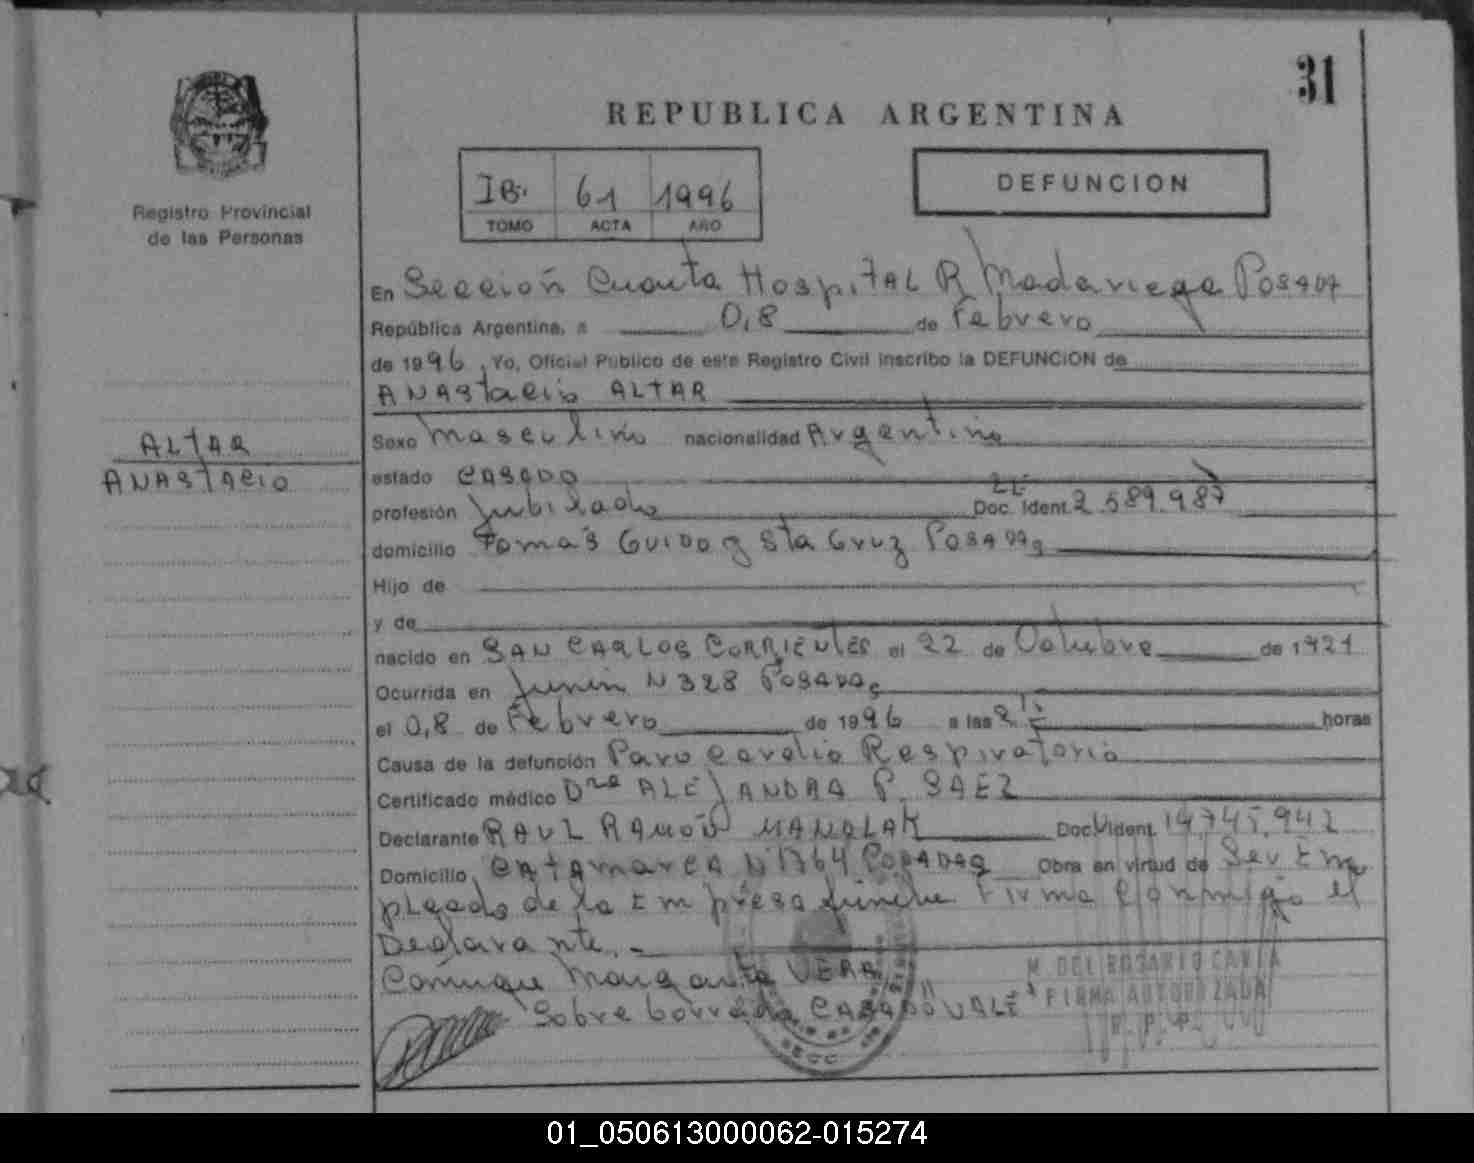 31
REPUBLICA ARGENTINA
Registro Provincial
de las Personas
IB. 61 1996
TOMO ACTA AÑO
DEFUNCION
En Sección Cuarta Hospital R Madariaga Posadas
República Argentina, a 0,8 de Febrero
de 1996, Yo, Oficial Público de este Registro Civil inscribo la DEFUNCION de
ANAStacio ALTAR
ALTAR
ANASTACIO
Sexo masculino nacionalidad Argentino
estado CASADO
profesión Jubilado Doc. Ident. LE 2.589.987
domicilio Tomás Guido y Sta Cruz Posadas
Hijo de
y de
nacido en SAN CARLOS CORRIENTES el 22 de Octubre de 1921
Ocurrida en Junin N 328 Posadas
el 0,8 de Febrero de 1996 a las horas
Causa de la defunción Paro Cardio Respiratorio
Certificado médico Dra ALEJANDRA P. SAEZ
Declarante RAUL RAMON Doc. Ident. 14.745.942
Domicilio CATAMARCA N 1764 POSADAS Obra en virtud de Ser Em
pleado de la Empresa fúnebre Firma conmigo el
Declarante.-
Conyuge Margarita VERA
Sobre borrado "CASADO" VALE
M. DEL ROSARIO
FIRMA AUTORIZADA
R. P. P.
01_050613000062-015274